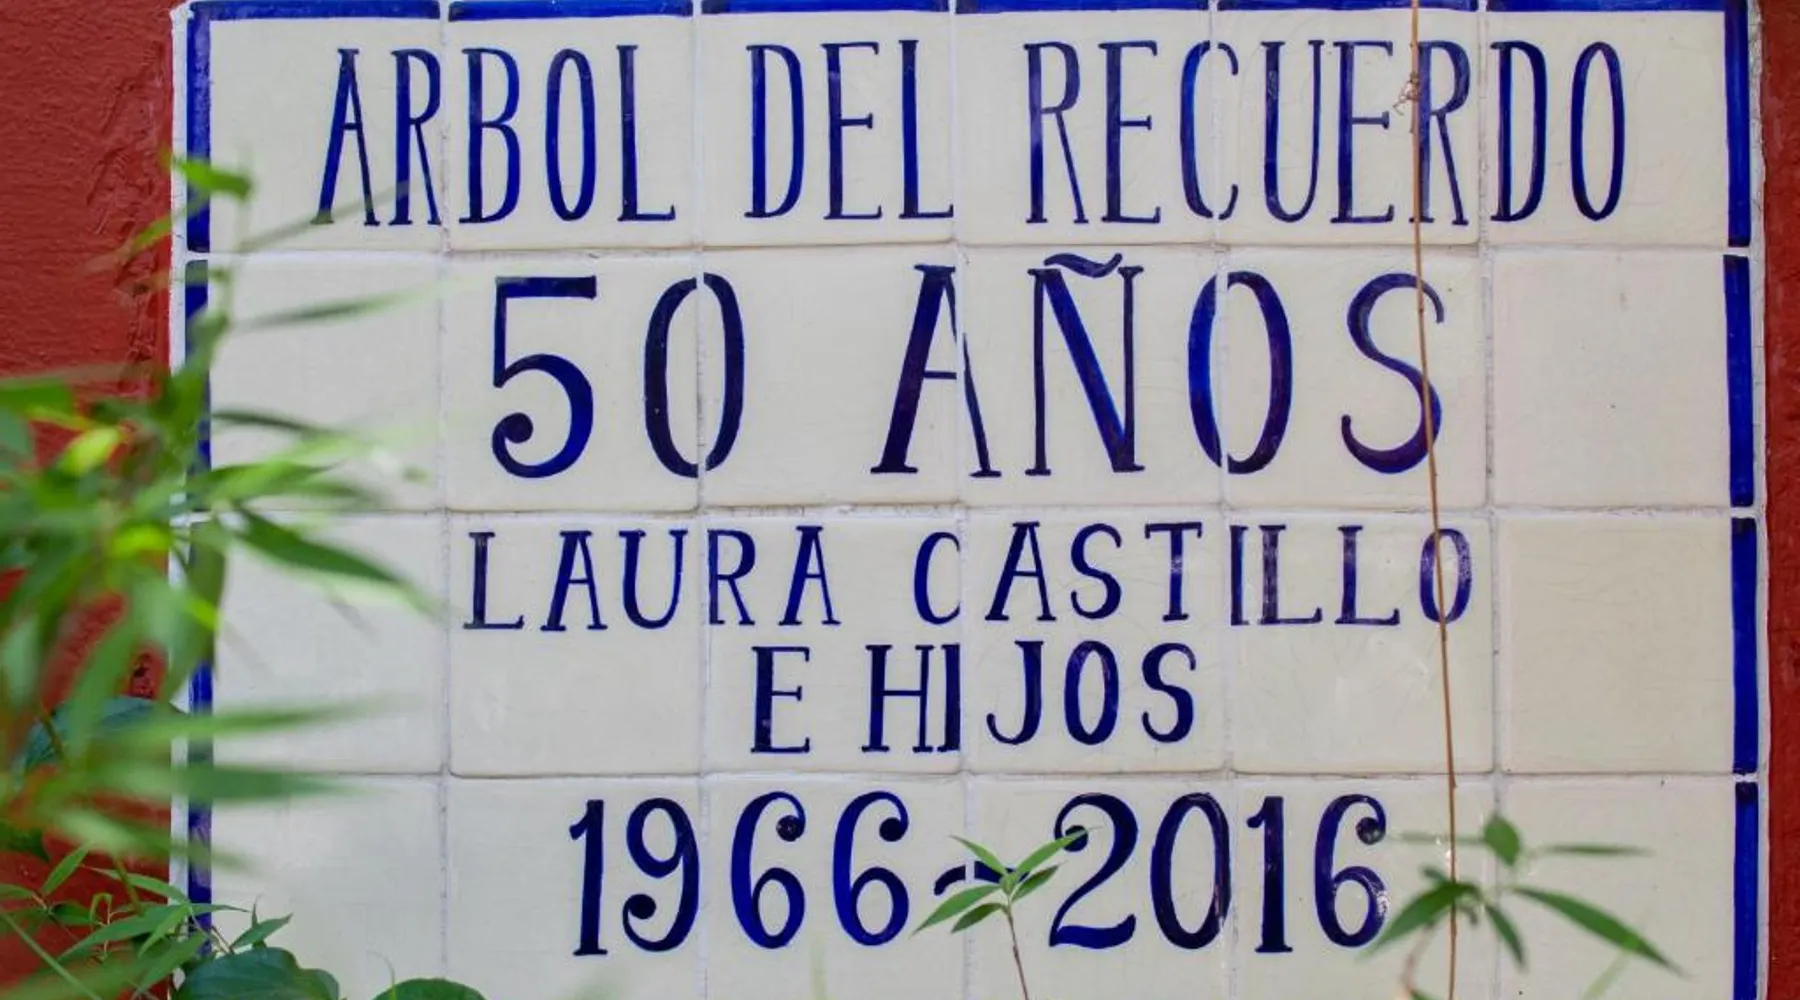 ARBOL DEL RECUERDO
50 AÑOS
LAURA CASTILLO
E HIJOS
1966-2016